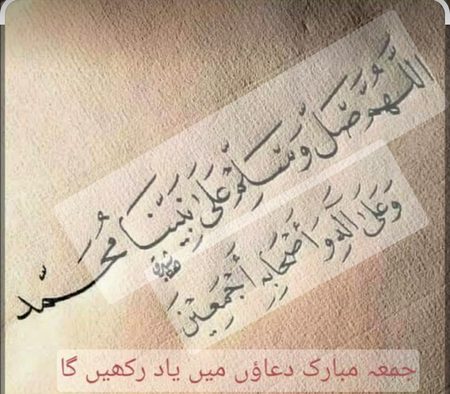 اللَّهُمَّ صَلِّ وَسَلِّمْ عَلَىٰ نَبِيِّنَا مُحَمَّد
وَعَلَىٰ آلِهِ وَأَصْحَابِهِ أَجْمَعِينَ
جمعہ مبارک دعاؤں میں یاد رکھیں گا